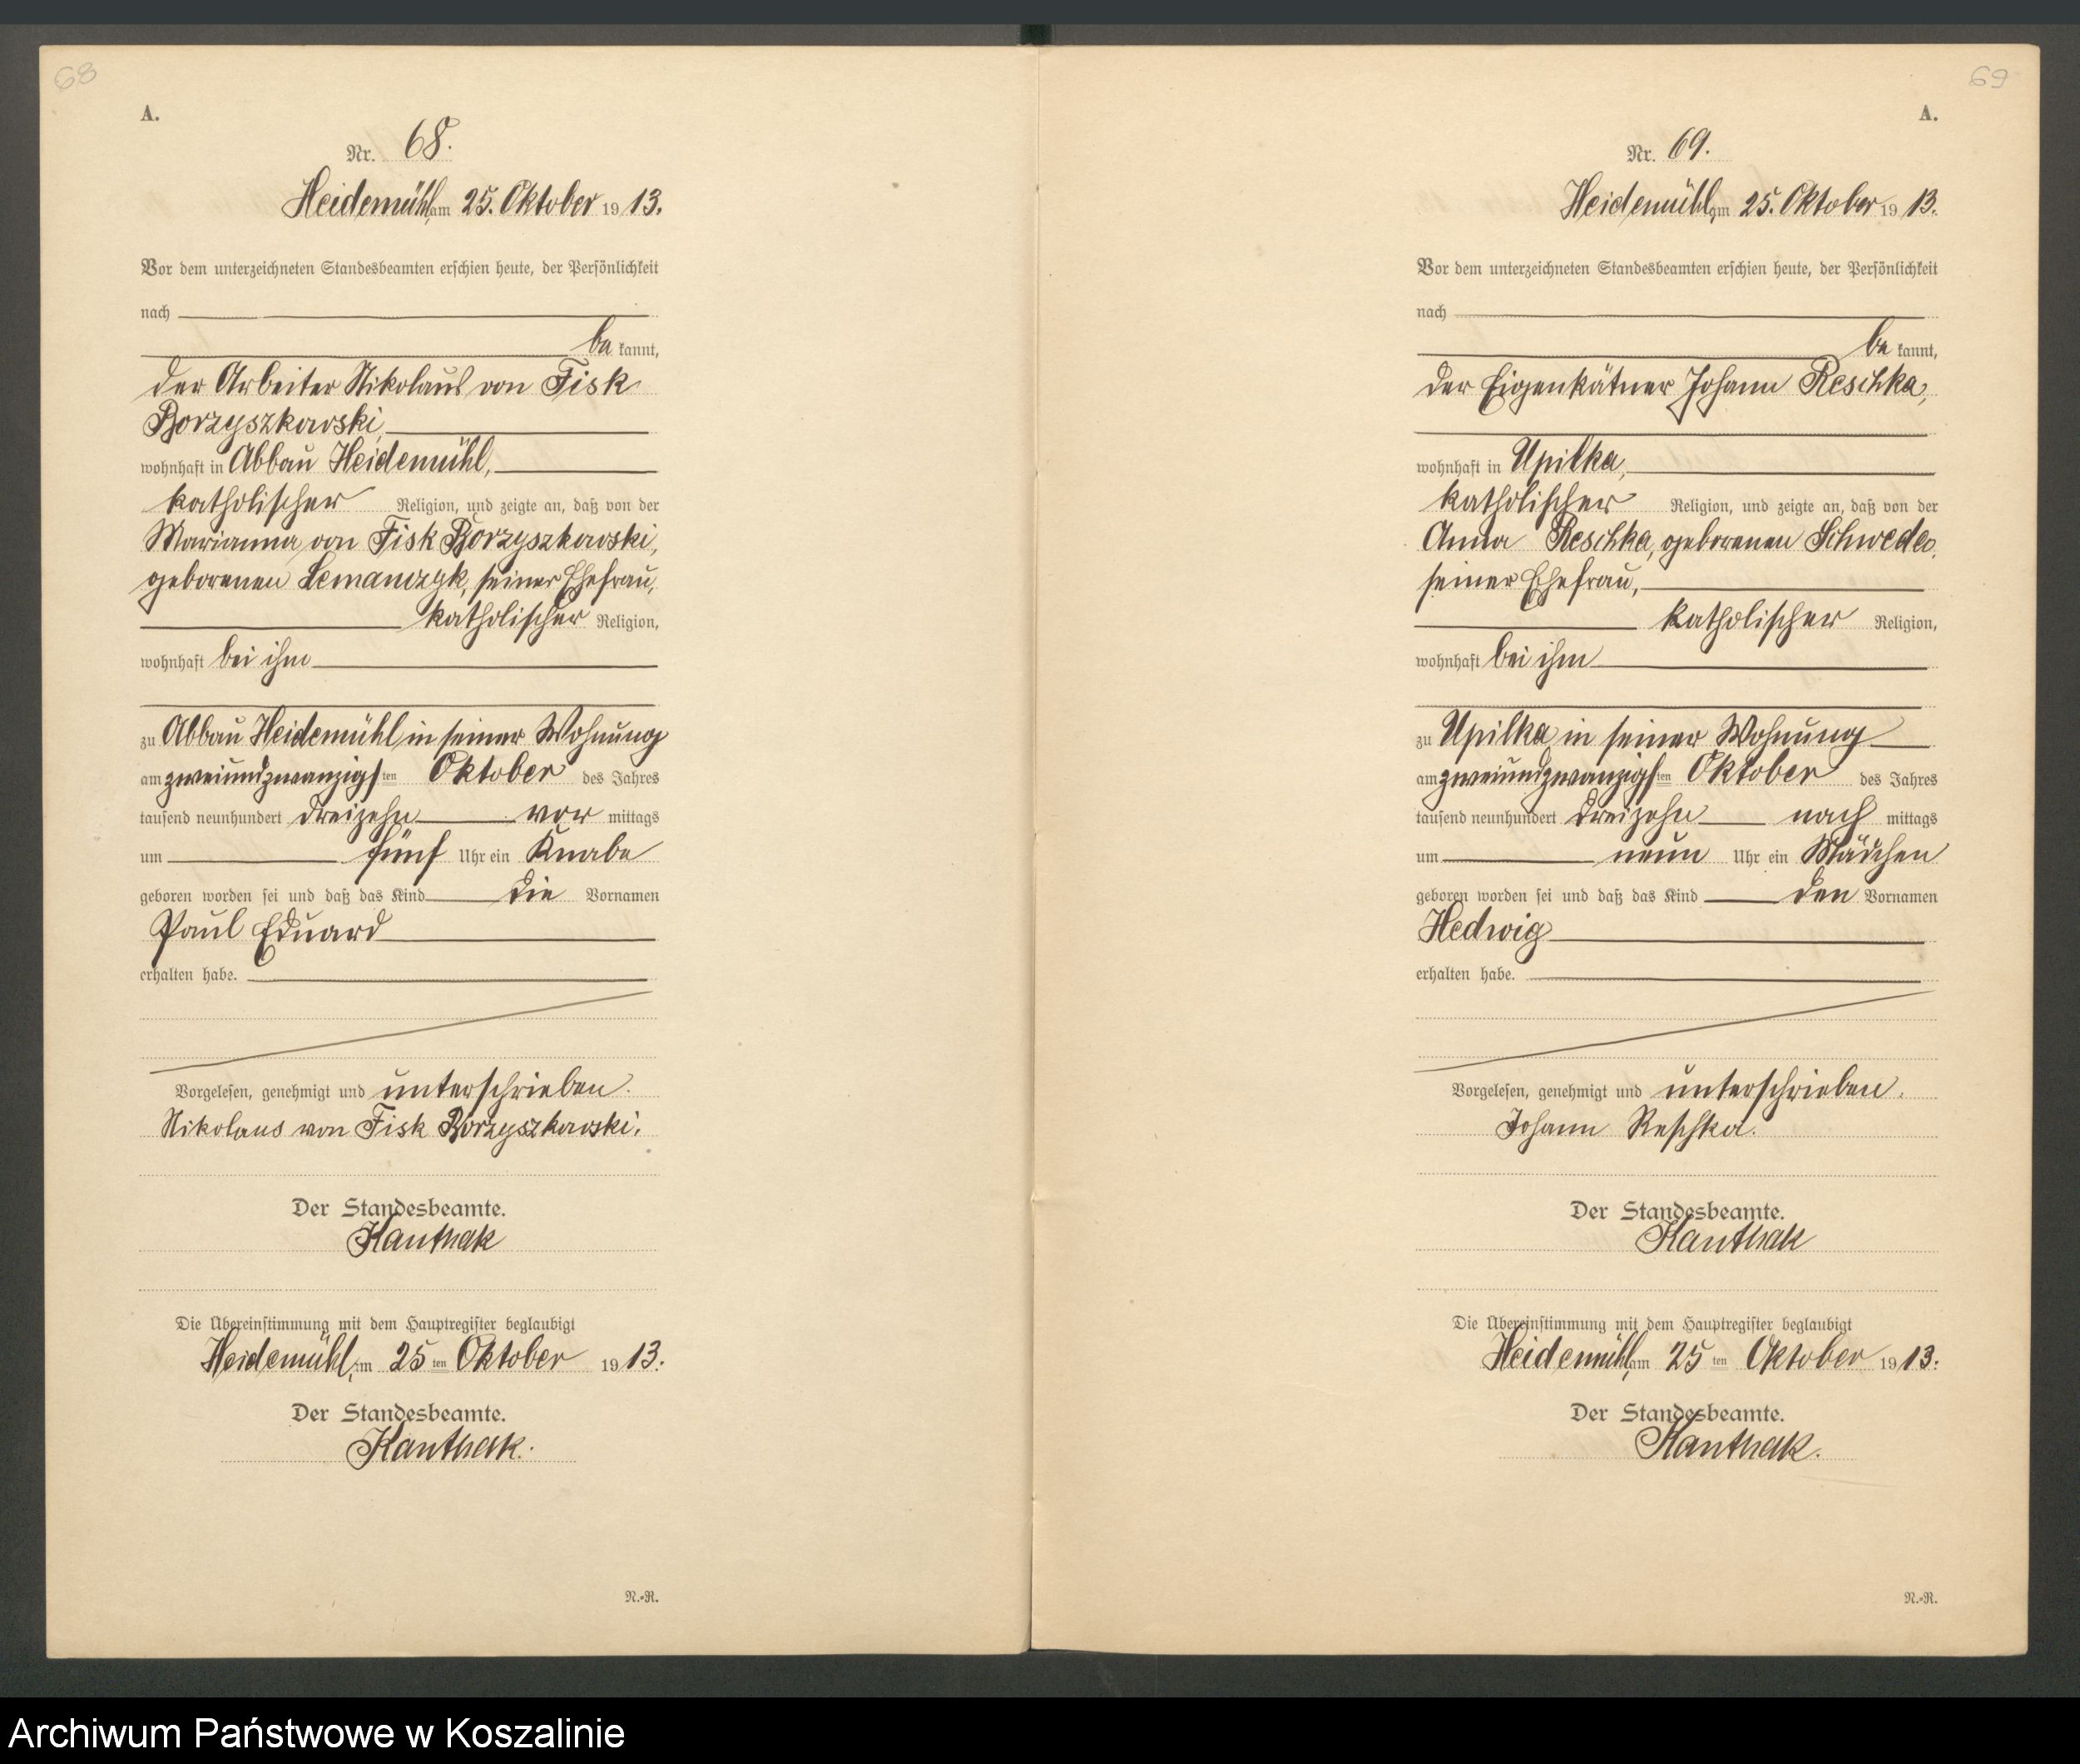 68
A.
Nr. 68.
Heidemühl, am 25. Oktober 1913.
Vor dem unterzeichneten Standesbeamten erschien heute, der Persönlichkeit
nach
be kannt,
der Arbeiter Nikolaus von Fisk
Borzyszkowski,
wohnhaft in Abbau Heidemühl,
katholischer Religion, und zeigte an, daß von der
Marianna von Fisk Borzyszkowski,
geborenen Lemanczyk, seiner Ehefrau,
katholischer Religion,
wohnhaft bei ihm
zu Abbau Heidemühl in seiner Wohnung
am zweiundzwanzigsten Oktober des Jahres
tausend neunhundert dreizehn vor mittags
um fünf Uhr ein Knabe
geboren worden sei und daß das Kind die Vornamen
Paul Eduard
erhalten habe.
Vorgelesen, genehmigt und unterschrieben.
Nikolaus von Fisk Borzyszkowski.
Der Standesbeamte.
Kanthak
Die Übereinstimmung mit dem Hauptregister beglaubigt
Heidemühl, am 25 ten Oktober 1913.
Der Standesbeamte.
Kanthak.
N.-R.
69
A.
Nr. 69.
Heidemühl, am 25. Oktober 1913.
Vor dem unterzeichneten Standesbeamten erschien heute, der Persönlichkeit
nach
be kannt,
der Eigenkätner Johann Reschka,
wohnhaft in Upilka,
katholischer Religion, und zeigte an, daß von der
Anna Reschka, geborenen Schwedo,
seiner Ehefrau,
katholischer Religion,
wohnhaft bei ihm
zu Upilka in seiner Wohnung
am zweiundzwanzigsten Oktober des Jahres
tausend neunhundert dreizehn nach mittags
um neun Uhr ein Mädchen
geboren worden sei und daß das Kind den Vornamen
Hedwig
erhalten habe.
Vorgelesen, genehmigt und unterschrieben.
Johann Reschka.
Der Standesbeamte.
Kanthak
Die Übereinstimmung mit dem Hauptregister beglaubigt
Heidemühl, am 25 ten Oktober 1913.
Der Standesbeamte.
Kanthak.
N.-R.
Archiwum Państwowe w Koszalinie